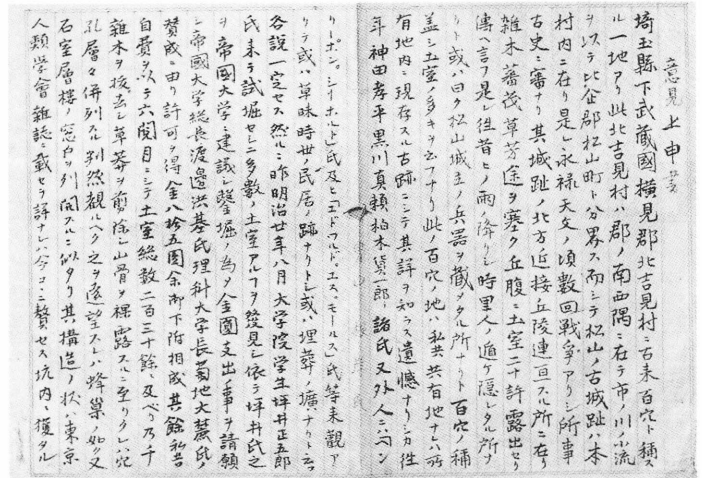 意見上申書
埼玉縣下武蔵國横見郡北吉見村ニ古来百穴ト稱ス
ル一地アリ此北吉見村ハ郡ノ南西隅ニ在テ市ノ川ノ小流
ヲ以テ比企郡松山町ト分界ス而シテ松山ノ古城趾ハ本
村内ニ在リ是レ永禄天文ノ頃数回戦争アリシ所事
古史ニ審ナリ其城趾ノ北方近接丘陵連亘スル所ニ在リ
雑木蕃茂草芳途ヲ塞ク丘腹ニ土室二十許露出セリ
傳ヘ言フ是レ往昔ヒノ雨ノ降リシ時里人ノ遁ケ隠レタル所ナ
リト或ハ曰ク松山城主ノ兵器ヲ蔵メタル所ナリト百穴ノ稱
盖シ土室ノ多キヲ云フナリ此ノ百穴ノ地ハ私共共有地ナレハ所
有地内ニ現存スル古跡ニシテ其詳ヲ知ラス遺憾ナリシカ往
年神田孝平黒川真頼柏木貨一郎ノ諸氏又外人ニハヘン
リー、ボン、シイボルド氏及ヒエドワルド、エス、モールス氏等来観ア
リテ或ハ草昧時世ノ民居ノ跡ナリトシ或ハ埋葬ノ壙ナリト云フ
各説一定セス然ルニ昨明治廿年八月大学院学生坪井正五郎
氏来テ試堀セシニ多数ノ土室アルヲ発見シ依テ坪井氏之
ヲ帝國大学ニ建議シ鑿堀ノ為メ金圓支出ノ事ヲ請願
シ帝國大学総長渡邊洪基氏理科大学長菊地大麓氏ノ
賛成ニ由リ許可ヲ得金八拾五圓余御下附相成其餘私共
自費ヲ以テ六閲月ニシテ土室総数二百三十餘ニ及ベリ乃チ
雑木ヲ抜去シ草莽ヲ剪除シ山骨ヲ裸露スルニ至リタレハ穴
孔層々併列スル判然観ルヘク之ヲ遠望スレハ蜂巣ノ如ク又
石室層樓ノ窓戸ヲ列開スルニ似タリ其構造ノ状ハ東京
人類学會雑誌ニ載セテ詳ナレハ今コヽニ贅セス坑内ニ獲タル